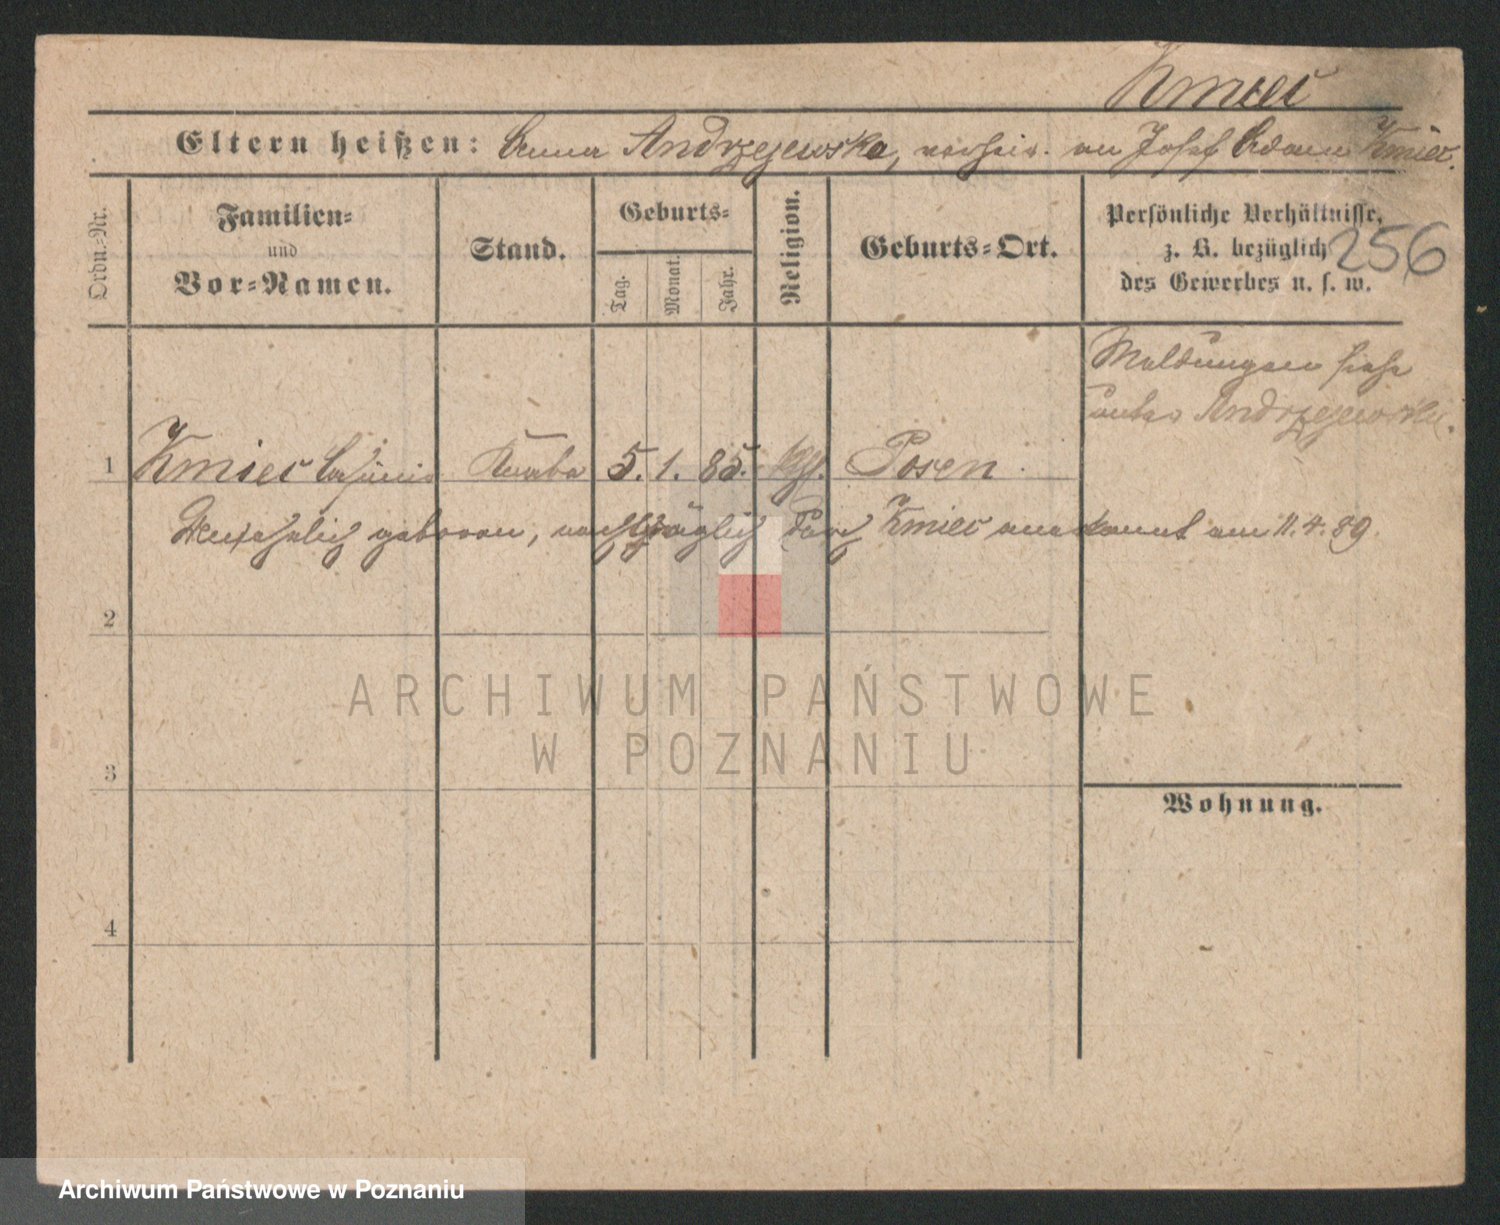 Kmiec
Eltern heißen: Anna Andrzejewska, verheir. an Josef Adam Kmiec.
Ordn.-Nr.
Familien-
und
Vor-Namen.
Stand.
Geburts-
Tag.
Monat.
Jahr.
Religion.
Geburts-Ort.
Persönliche Verhältnisse,
z. B. bezüglich
des Gewerbes u. s. w.
256
Meldungen siehe
unter Andrzejewska.
1 Kmiec Casimir Knabe 5. 1. 85. kath. Posen
Unehelich geboren, nachträglich durch Kmiec anerkannt am 11.4.89.
2
3
4
Wohnung.
ARCHIWUM PAŃSTWOWE
W POZNANIU
Archiwum Państwowe w Poznaniu